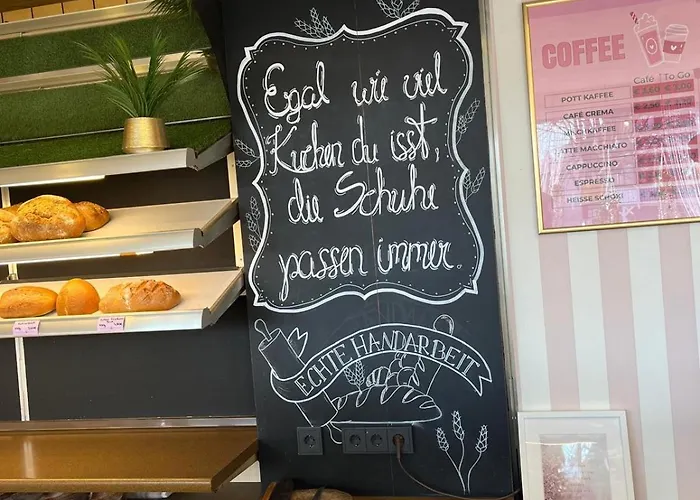 Egal wie viel
Kuchen du isst,
die Schuhe
passen immer.
ECHTE HANDARBEIT
COFFEE
Café To Go
POTT KAFFEE
CAFÉ CREMA
MILCHKAFFEE
LATTE MACCHIATO
CAPPUCCINO
ESPRESSO
HEISSE SCHOKI